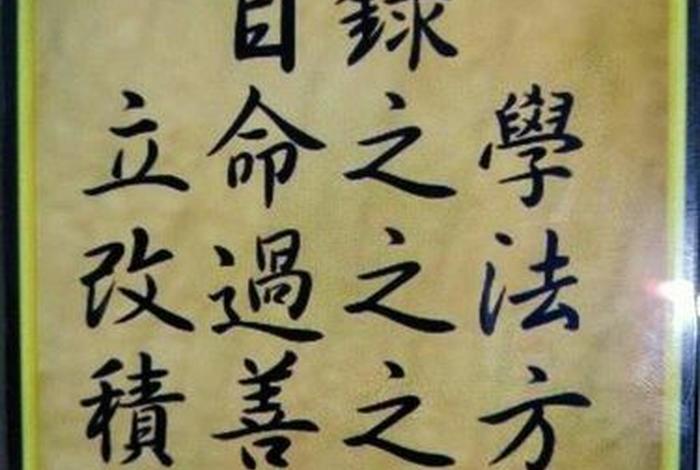 目錄
立命之學
改過之法
積善之方